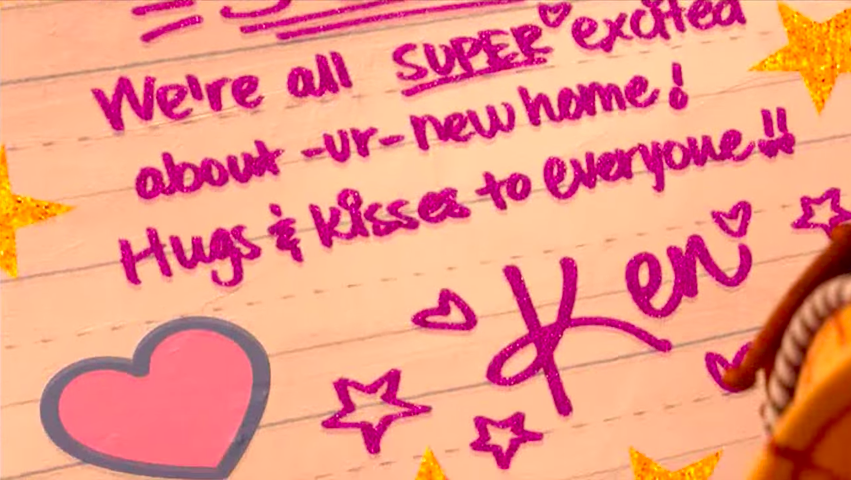 We're all SUPER excited
about -ur- new home!
Hugs & kisses to everyone!!
Ken